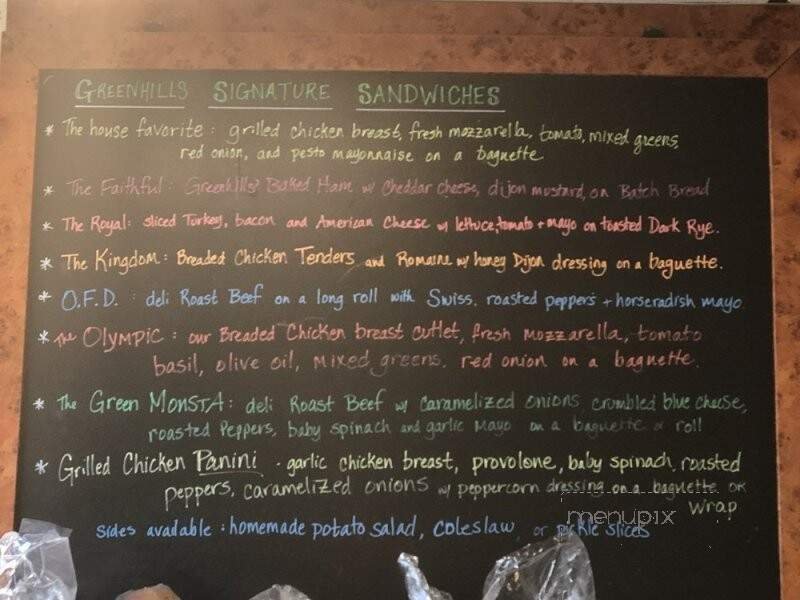 GREENHILLS SIGNATURE SANDWICHES
* The house favorite: grilled chicken breast, fresh mozzarella, tomato, mixed greens,
red onion, and pesto mayonnaise on a baguette
* The Faithful: Greenhills Baked Ham w/ Cheddar cheese, dijon mustard, on Batch Bread
* The Royal: sliced Turkey, bacon and American Cheese w/ lettuce, tomato + mayo on toasted Dark Rye.
* The Kingdom: Breaded Chicken Tenders and Romaine w/ honey Dijon dressing on a baguette.
* O.F.D.: deli Roast Beef on a long roll with Swiss, roasted peppers + horseradish mayo
* The OLYMPIC: our Breaded Chicken breast cutlet, fresh mozzarella, tomato
basil, olive oil, mixed greens, red onion on a baguette.
* The Green MONSTA: deli Roast Beef w/ caramelized onions crumbled blue cheese,
roasted Peppers, baby spinach and garlic Mayo on a baguette or roll
* Grilled Chicken Panini - garlic chicken breast, provolone, baby spinach, roasted
peppers, caramelized onions w/ peppercorn dressing on a baguette OR
wrap
menupix
Sides available: homemade potato salad, coleslaw, or pickle slices